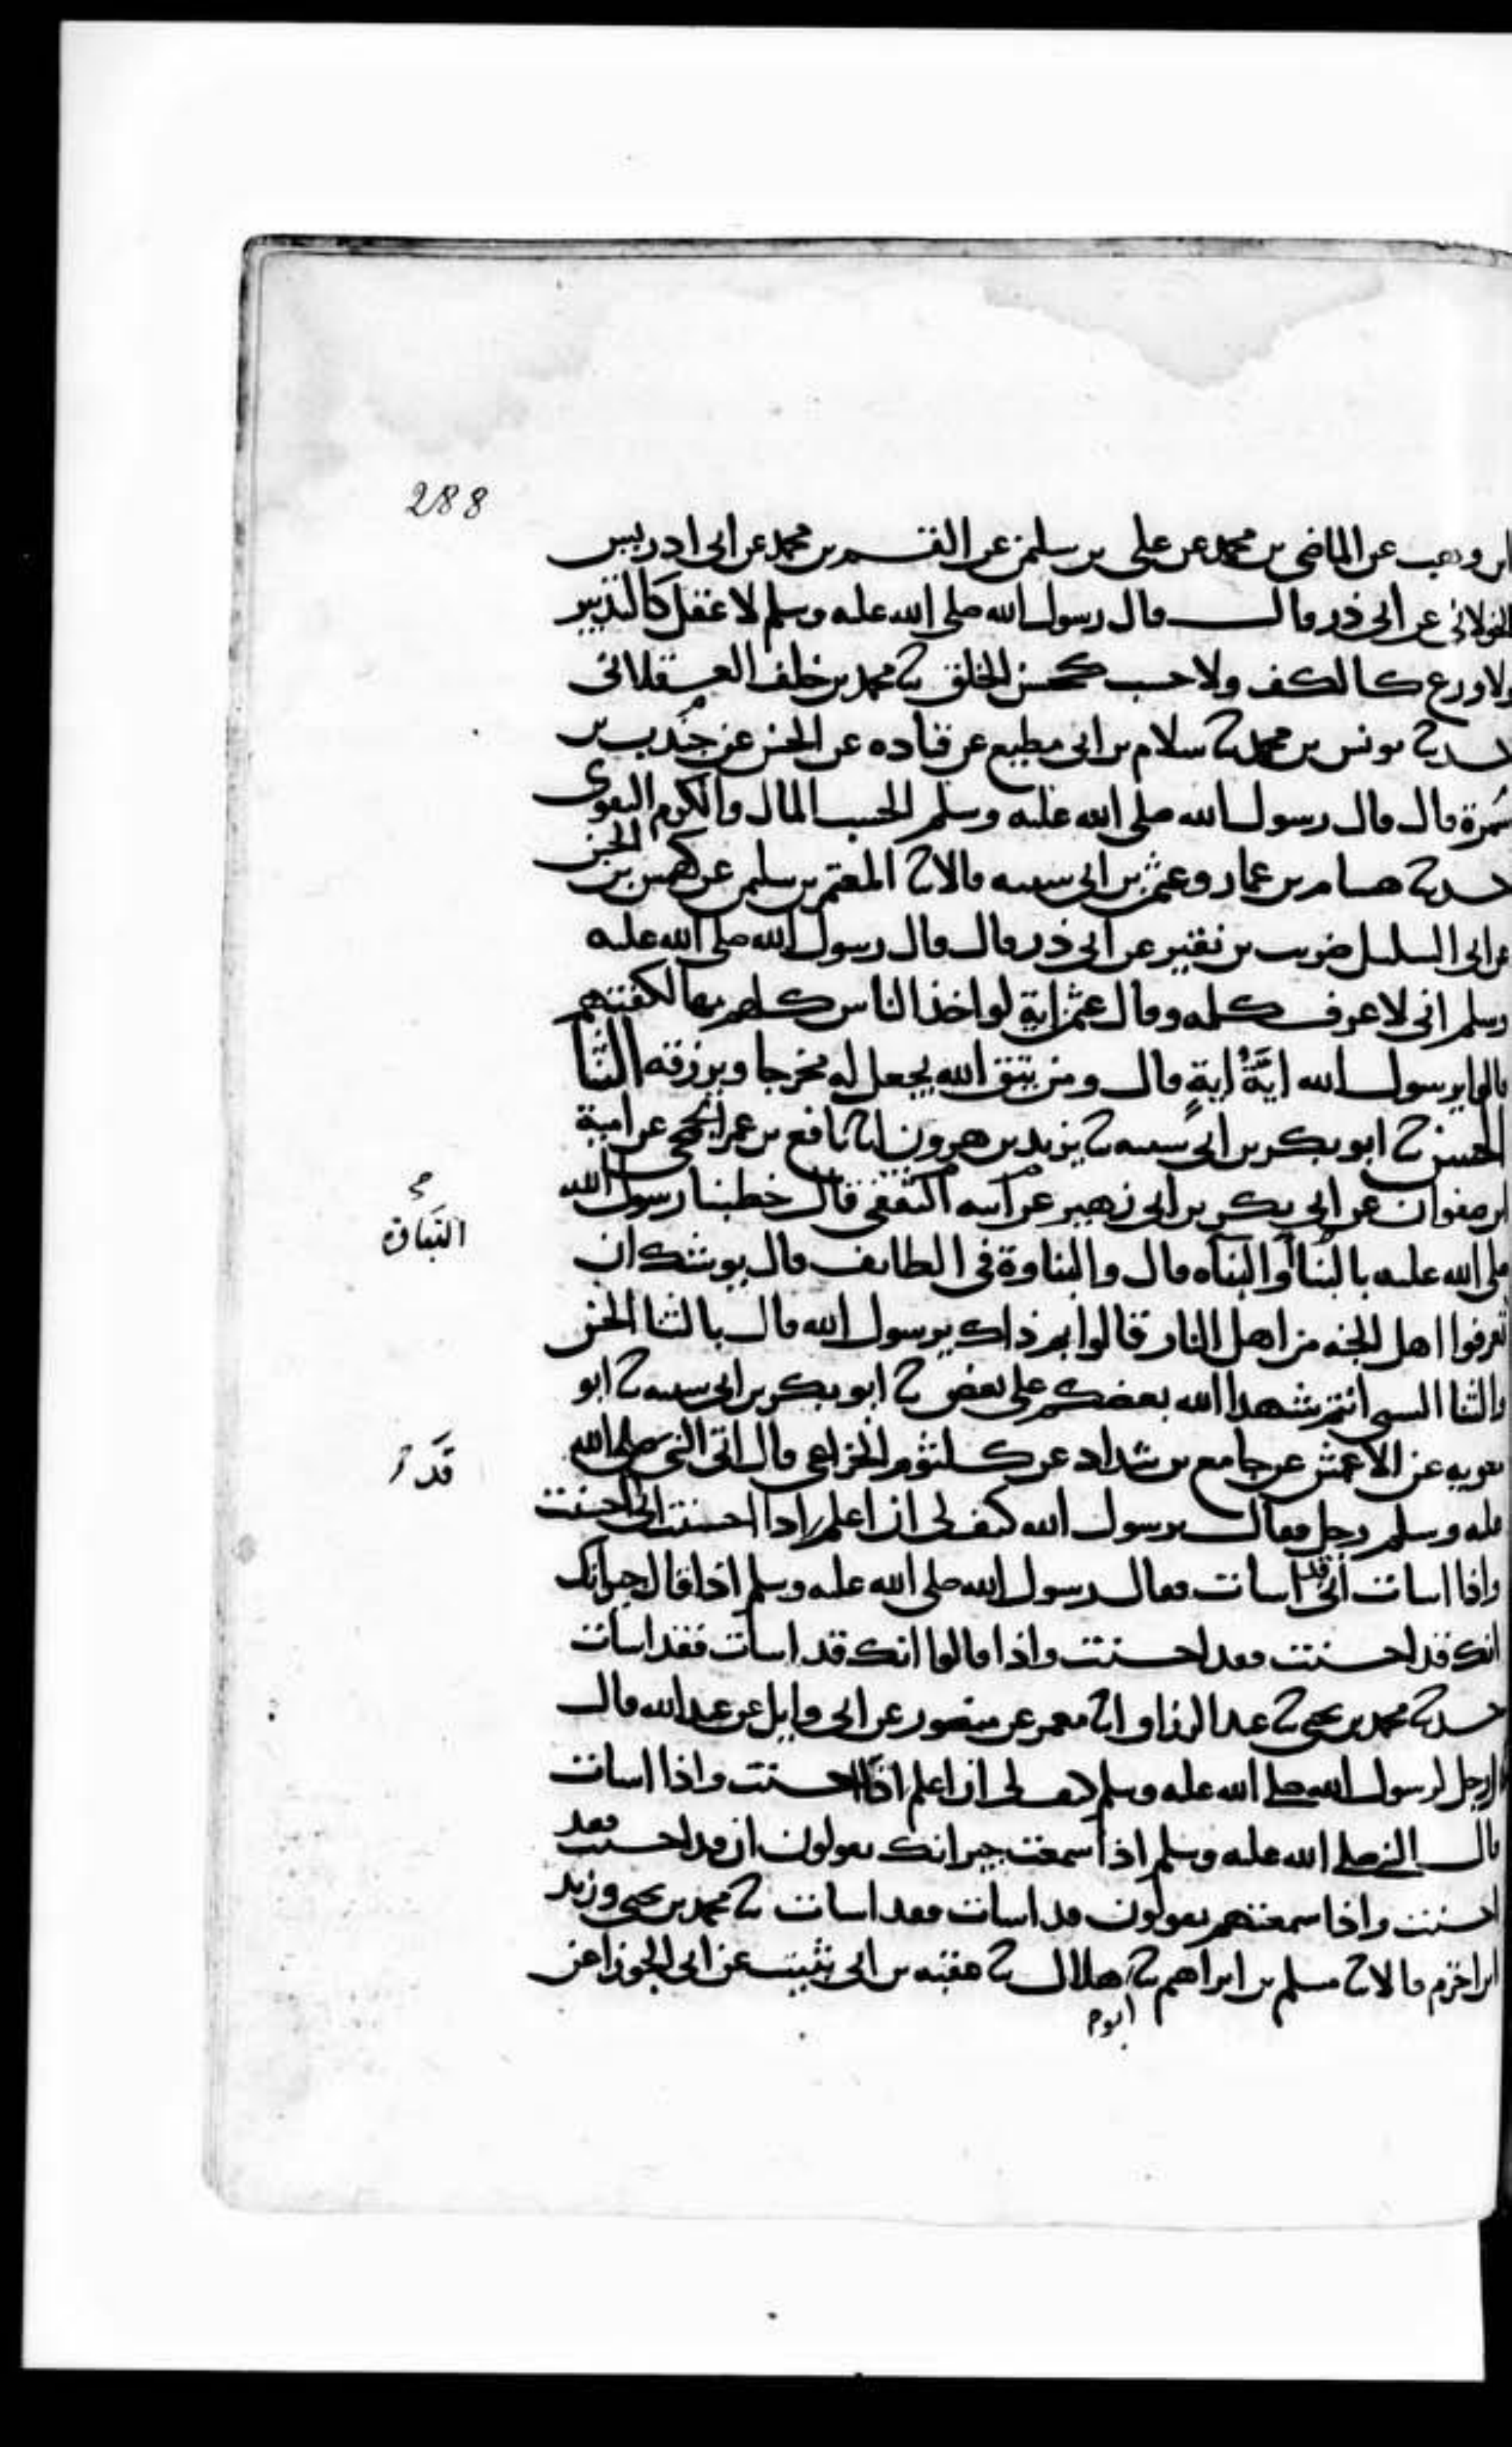 288
ابن وهب عن الماضي بن محمد عن علي بن سليمن عن القسم بن محمد عن ابي ادريس
الخولاني عن ابي ذر قال قال رسول الله صلى الله عليه وسلم لا عقل كالتدبير
ولا ورع كالكف ولا حسب كحسن الخلق ثا محمد بن خلف العسقلاني
حدثا يونس بن محمد ثا سلام بن ابي مطيع عن قتاده عن الحسن عن جندب بن
سمرة قال قال رسول الله صلى الله عليه وسلم الحسب المال والكرم التقوى
حدثا هسام بن عمار وعثمن بن ابي شيبه قالا ثا المعتمر بن سليمن عن كهمس بن الحسن
عن ابي السليل ضريب بن نقير عن ابي ذر قال قال رسول الله صلى الله عليه
وسلم اني لاعرف كلمه وقال عثمن اية لو اخذ الناس كلهم بها لكفتهم
قالوا يرسول الله ايَّةُ ايةٍ قال ومن يتق الله يجعل له مخرجا ويرزقه الثنا
الحسن ثا ابو بكر بن ابي شيبه ثا يزيد بن هرون انا نافع بن عمر الجمحي عن امية
ابن صفوان عن ابي بكر بن ابي زهير عن ابيه الثقفي قال خطبنا رسول الله
صلى الله عليه بالنبا او النباه قال والنباوة في الطايف قال يوشك ان
تعرفوا اهل الجنه من اهل النار قالوا بم ذاك يرسول الله قال بالثنا الحسن
والثنا السيي انتم شهدا الله بعضكم على بعض ثا ابو بكر بن ابي شيبه ثا ابو
معويه عن الاعمش عن جامع بن شداد عن كلثوم الخزاعي قال اتى النبي صلى الله
عليه وسلم رجل فقال يرسول الله كيف لي ان اعلم اذا احسنت اني احسنت
واذا اسات اني قد اسات فقال رسول الله صلى الله عليه وسلم اذا قال جيرانك
انك قد احسنت فقد احسنت واذا قالوا انك قد اسات فقد اسات
حدثا محمد بن يحيى ثا عبد الرزاق انا معمر عن منصور عن ابي وايل عن عبد الله قال
قال رجل لرسول الله صلى الله عليه وسلم كيف لي ان اعلم اذا احسنت واذا اسات
قال النبي صلى الله عليه وسلم اذا سمعت جيرانك يقولون ان قد احسنت فقد
احسنت واذا سمعتهم يقولون قد اسات فقد اسات ثا محمد بن يحيى وزيد
ابن اخزم قالا ثا مسلم بن ابراهيم ثا هلال ثا عقبه بن ابي ثبيت عن ابي الجوزا عن
ابو
النباة
قد